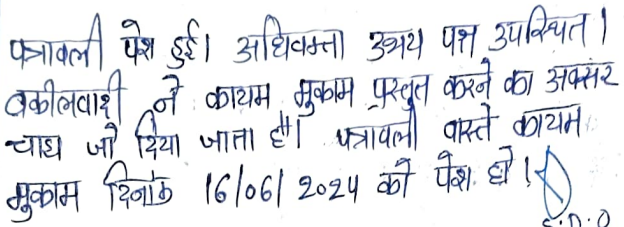 पत्रावली पेश हुई। अधिवक्ता उभय पक्ष उपस्थित।
वकीलवादी ने कायम मुकाम प्रस्तुत करने का अवसर
चाहा जो दिया जाता है। पत्रावली वास्ते कायम
मुकाम दिनांक 16/06/2024 को पेश हो।
S.D.O